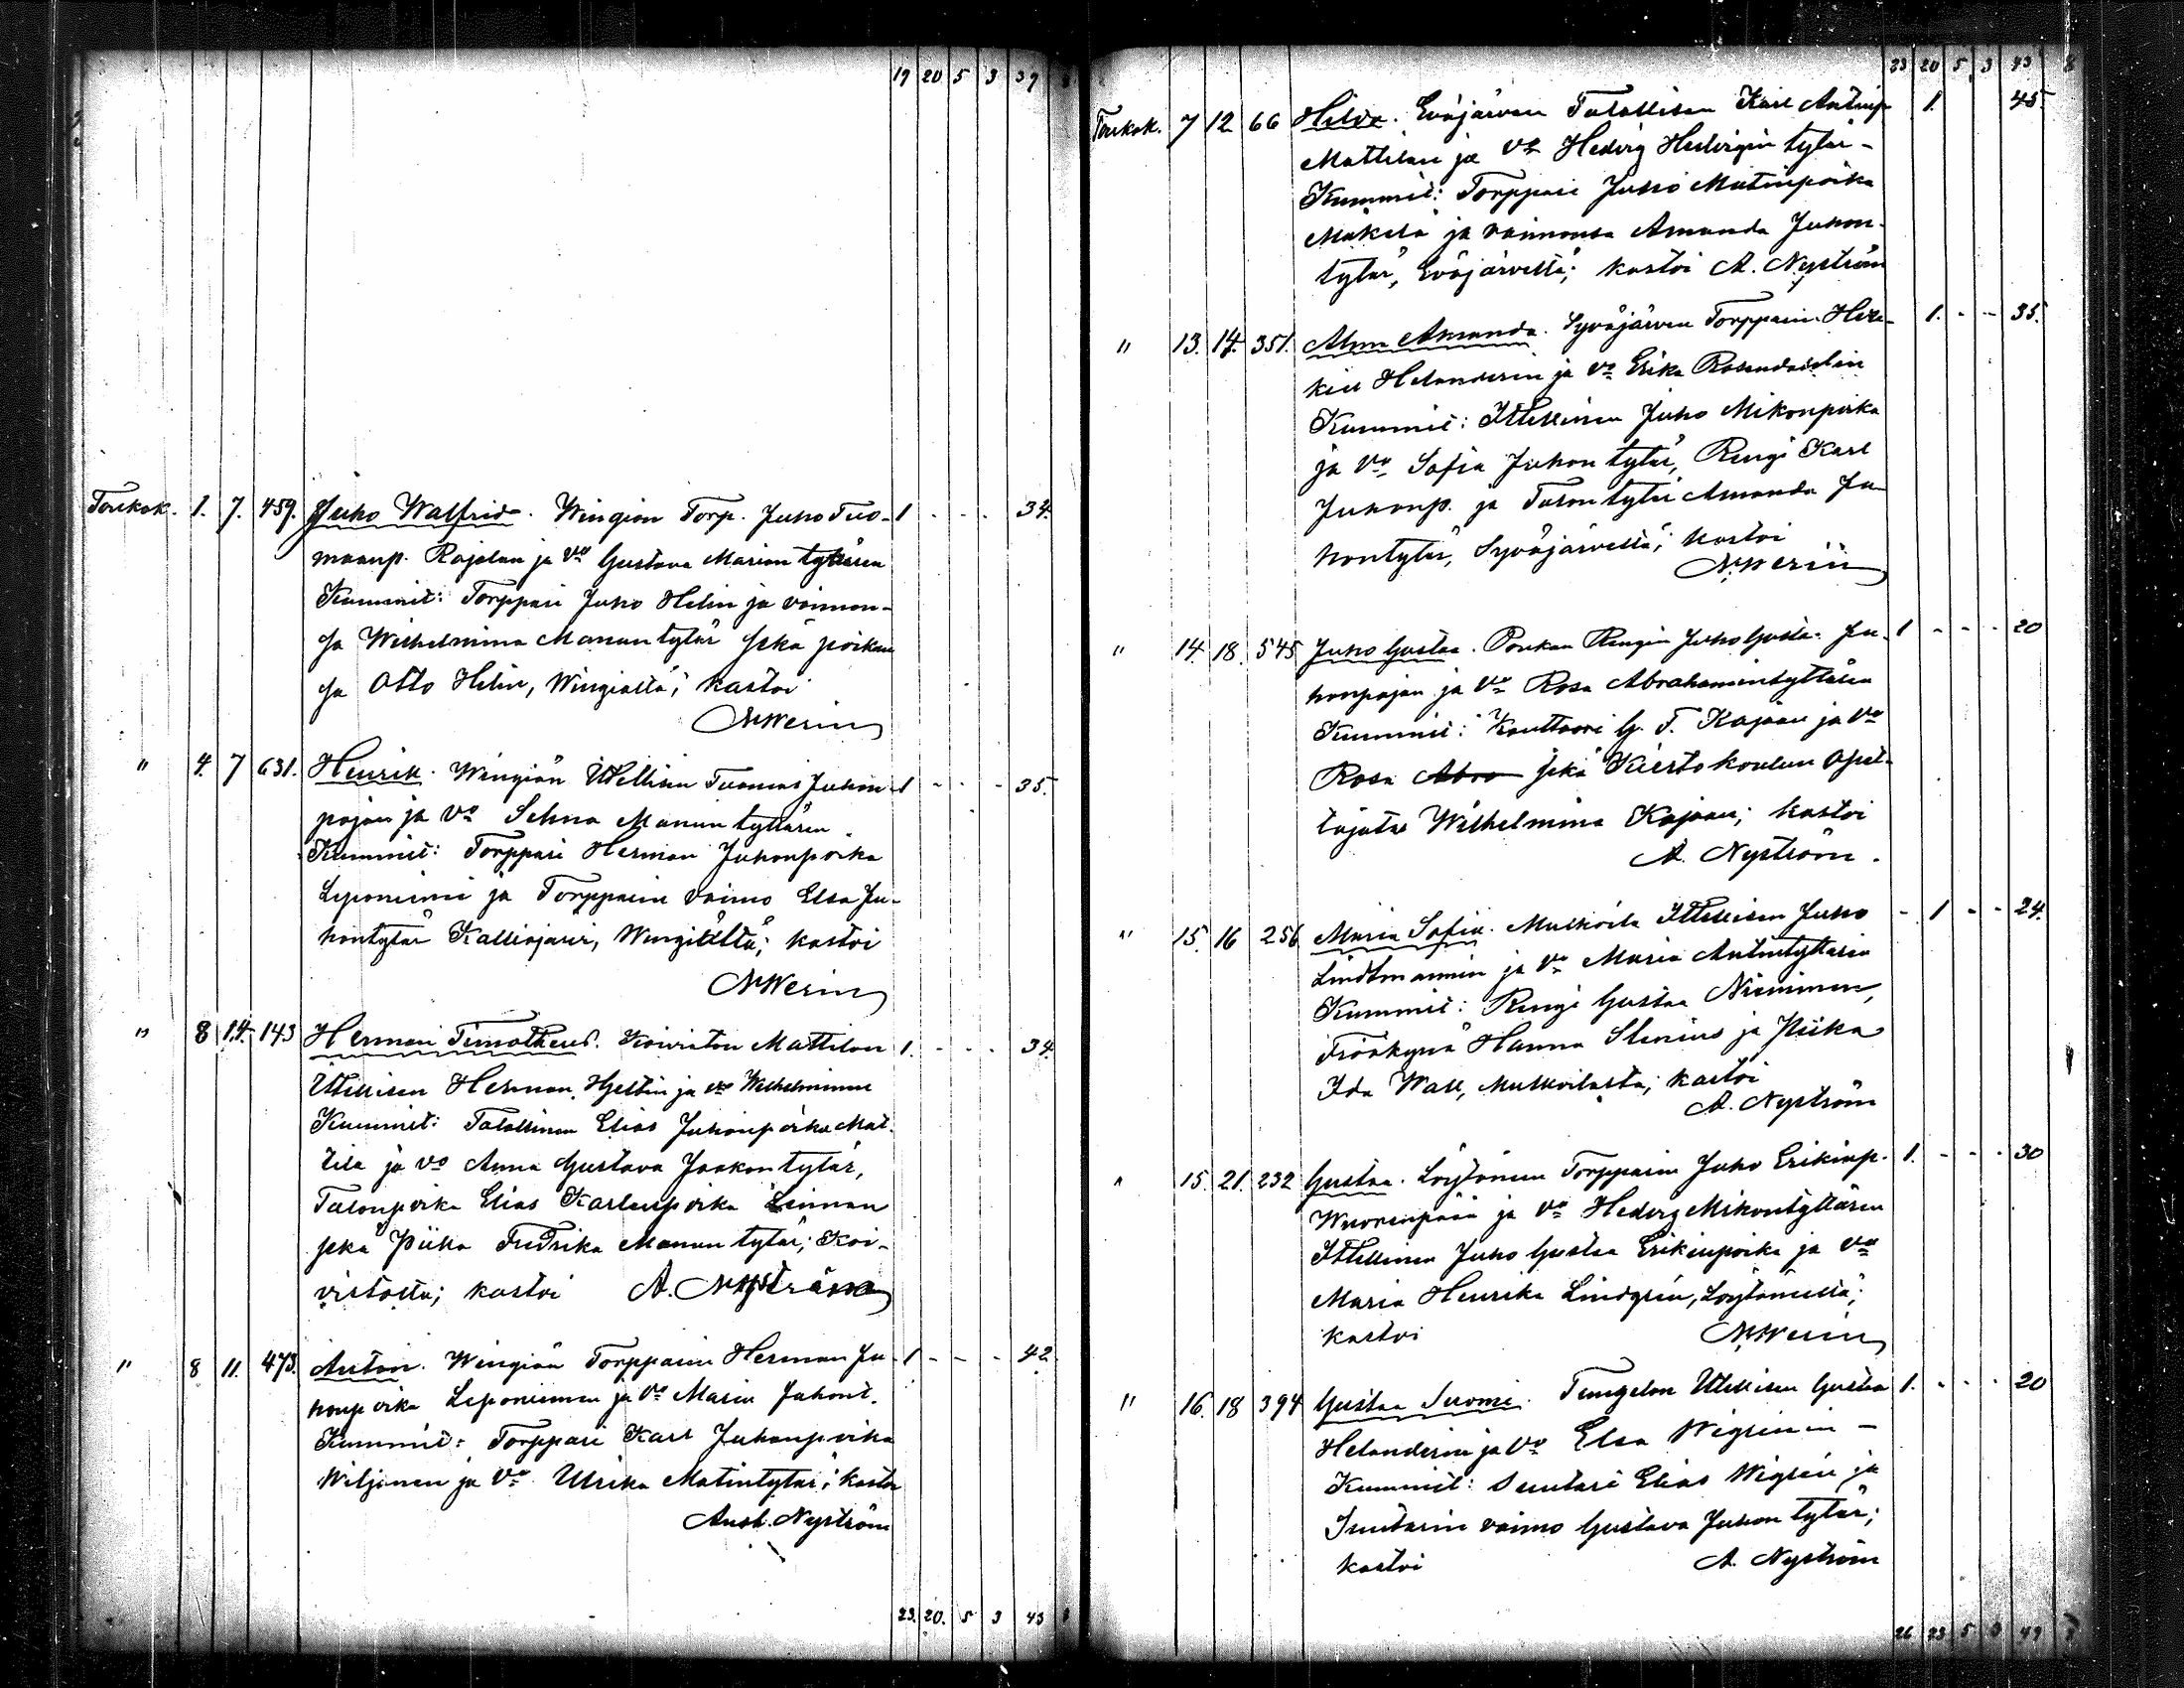 19 20 5 3 39 8
Toukok. 1. 7. 459. Juho Walfrid. Wingion Torp. Juho Tuo- 1 - - - 34.
maanp. Rajalan ja vo Gustava Marian tyttären
Kummit: Torppari Juho Helin ja vaimon-
sa Wilhelmina Manuntytär sekä poikan
sa Otto Helin, Wingiältä; kastoi
Nerin
" 4. 7 631. Henrik. Wingiön Ittellisen Tuomas Juhon- 1 - - - 35.
pojan ja vo Selma Manuntyttären.
Kummit: Torppari Herman Juhonpoika
Leponiemi ja Torpparin vaimo Elsa Ju-
hontytär Kalliojärvi, Wingiältä; kastoi
" 8 14. 143 Herman Timotheus. Koiviston Mattilan 1. - - - 34.
Ittellisen Herman Hjeltin ja vo Wilhelminan
Kummit: Talollinen Elias Juhonpoika Mat-
tila ja vo Anna Gustava Jaakontytär,
Talonpoika Elias Karlenpoika Linnan
sekä Piika Fredrika Manuntytär; Koi-
vistosta; kastoi A. Nyström
" 8 11. 473. Anton. Wingiön Torpparin Herman Ju- 1 - - - 42.
honpoika Leponiemen ja vo Maria Juhont.
Kummit: Torppari Karl Juhonpoika
Wiljanen ja vo Ulrika Matintytär; kastoi
Aust. Nyström
23. 20. 5 3 43 8
23 20 5 3 43 8
Toukok. 7 12 66 Hilda. Eväjärven Talollisen Karl Antinp. 1. 45
Mattilan ja vo Hedvig Hedvigin tytär -
Kummit: Torppari Juho Matinpoika
Mäkelä ja vaimonsa Amanda Juhon-
tytär, Eväjärveltä; kastoi A. Nyström
" 13. 14. 351. Alma Amanda. Syväjärven Torpparin Hen- 1. - - 35.
kin Helanderin ja vo Erika Rosendahlin
Kummit: Ittellinen Juho Mikonpoika
ja vo Sofia Juhontytär, Rengi Karl
Juhonp. ja Talontytär Amanda Ju-
hontytär, Syväjärveltä; kastoi
" 14. 18. 545 Juho Gustaa. Poukan Rengin Juho Gusta. Ju- 1 - - - 20
honpojan ja vo Rosa Abrahamintyttären
Kummit: Kanttoori G. F. Kajaan ja vo
Rosa Abra sekä Kiertokoulun Opet-
tajatar Wilhelmina Kajaan; kastoi
A. Nyström.
" 15. 16 256 Maria Sofia. Mulkoila Ittellisen Juho - 1 - - 24.
Lindtmannin ja vo Maria Antintyttären
Kummit: Rengi Gustaa Nieminen,
Fröökynä Hanna Stenius ja Piika
Ida Wall, Mulkoilasta; kastoi
A. Nyström
" 15. 21. 232 Gustaa. Löytänen Torpparin Juho Erikinp. 1. - - - 30
Wuorenpään ja vo Hedvig Mikontyttären
Ittellinen Juho Gustaa Erikinpoika ja vo
Maria Henrika Lindgrén, Löytäneeltä;
kastoi
" 16. 18 394 Gustaa Suomi. Tungelon Ittellisen Gustaa 1. - - - 20
Helanderin ja vo Elsa Wigrenin -
Kummit: Suutari Elias Wigrén ja
Suutarin vaimo Gustava Juhontytär;
kastoi A. Nyström
26 23 5 3 49 8